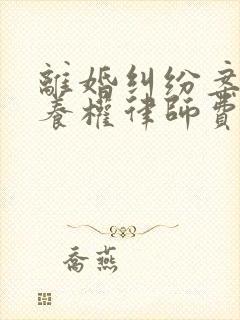 離婚糾紛案
養權律師費
喬燕